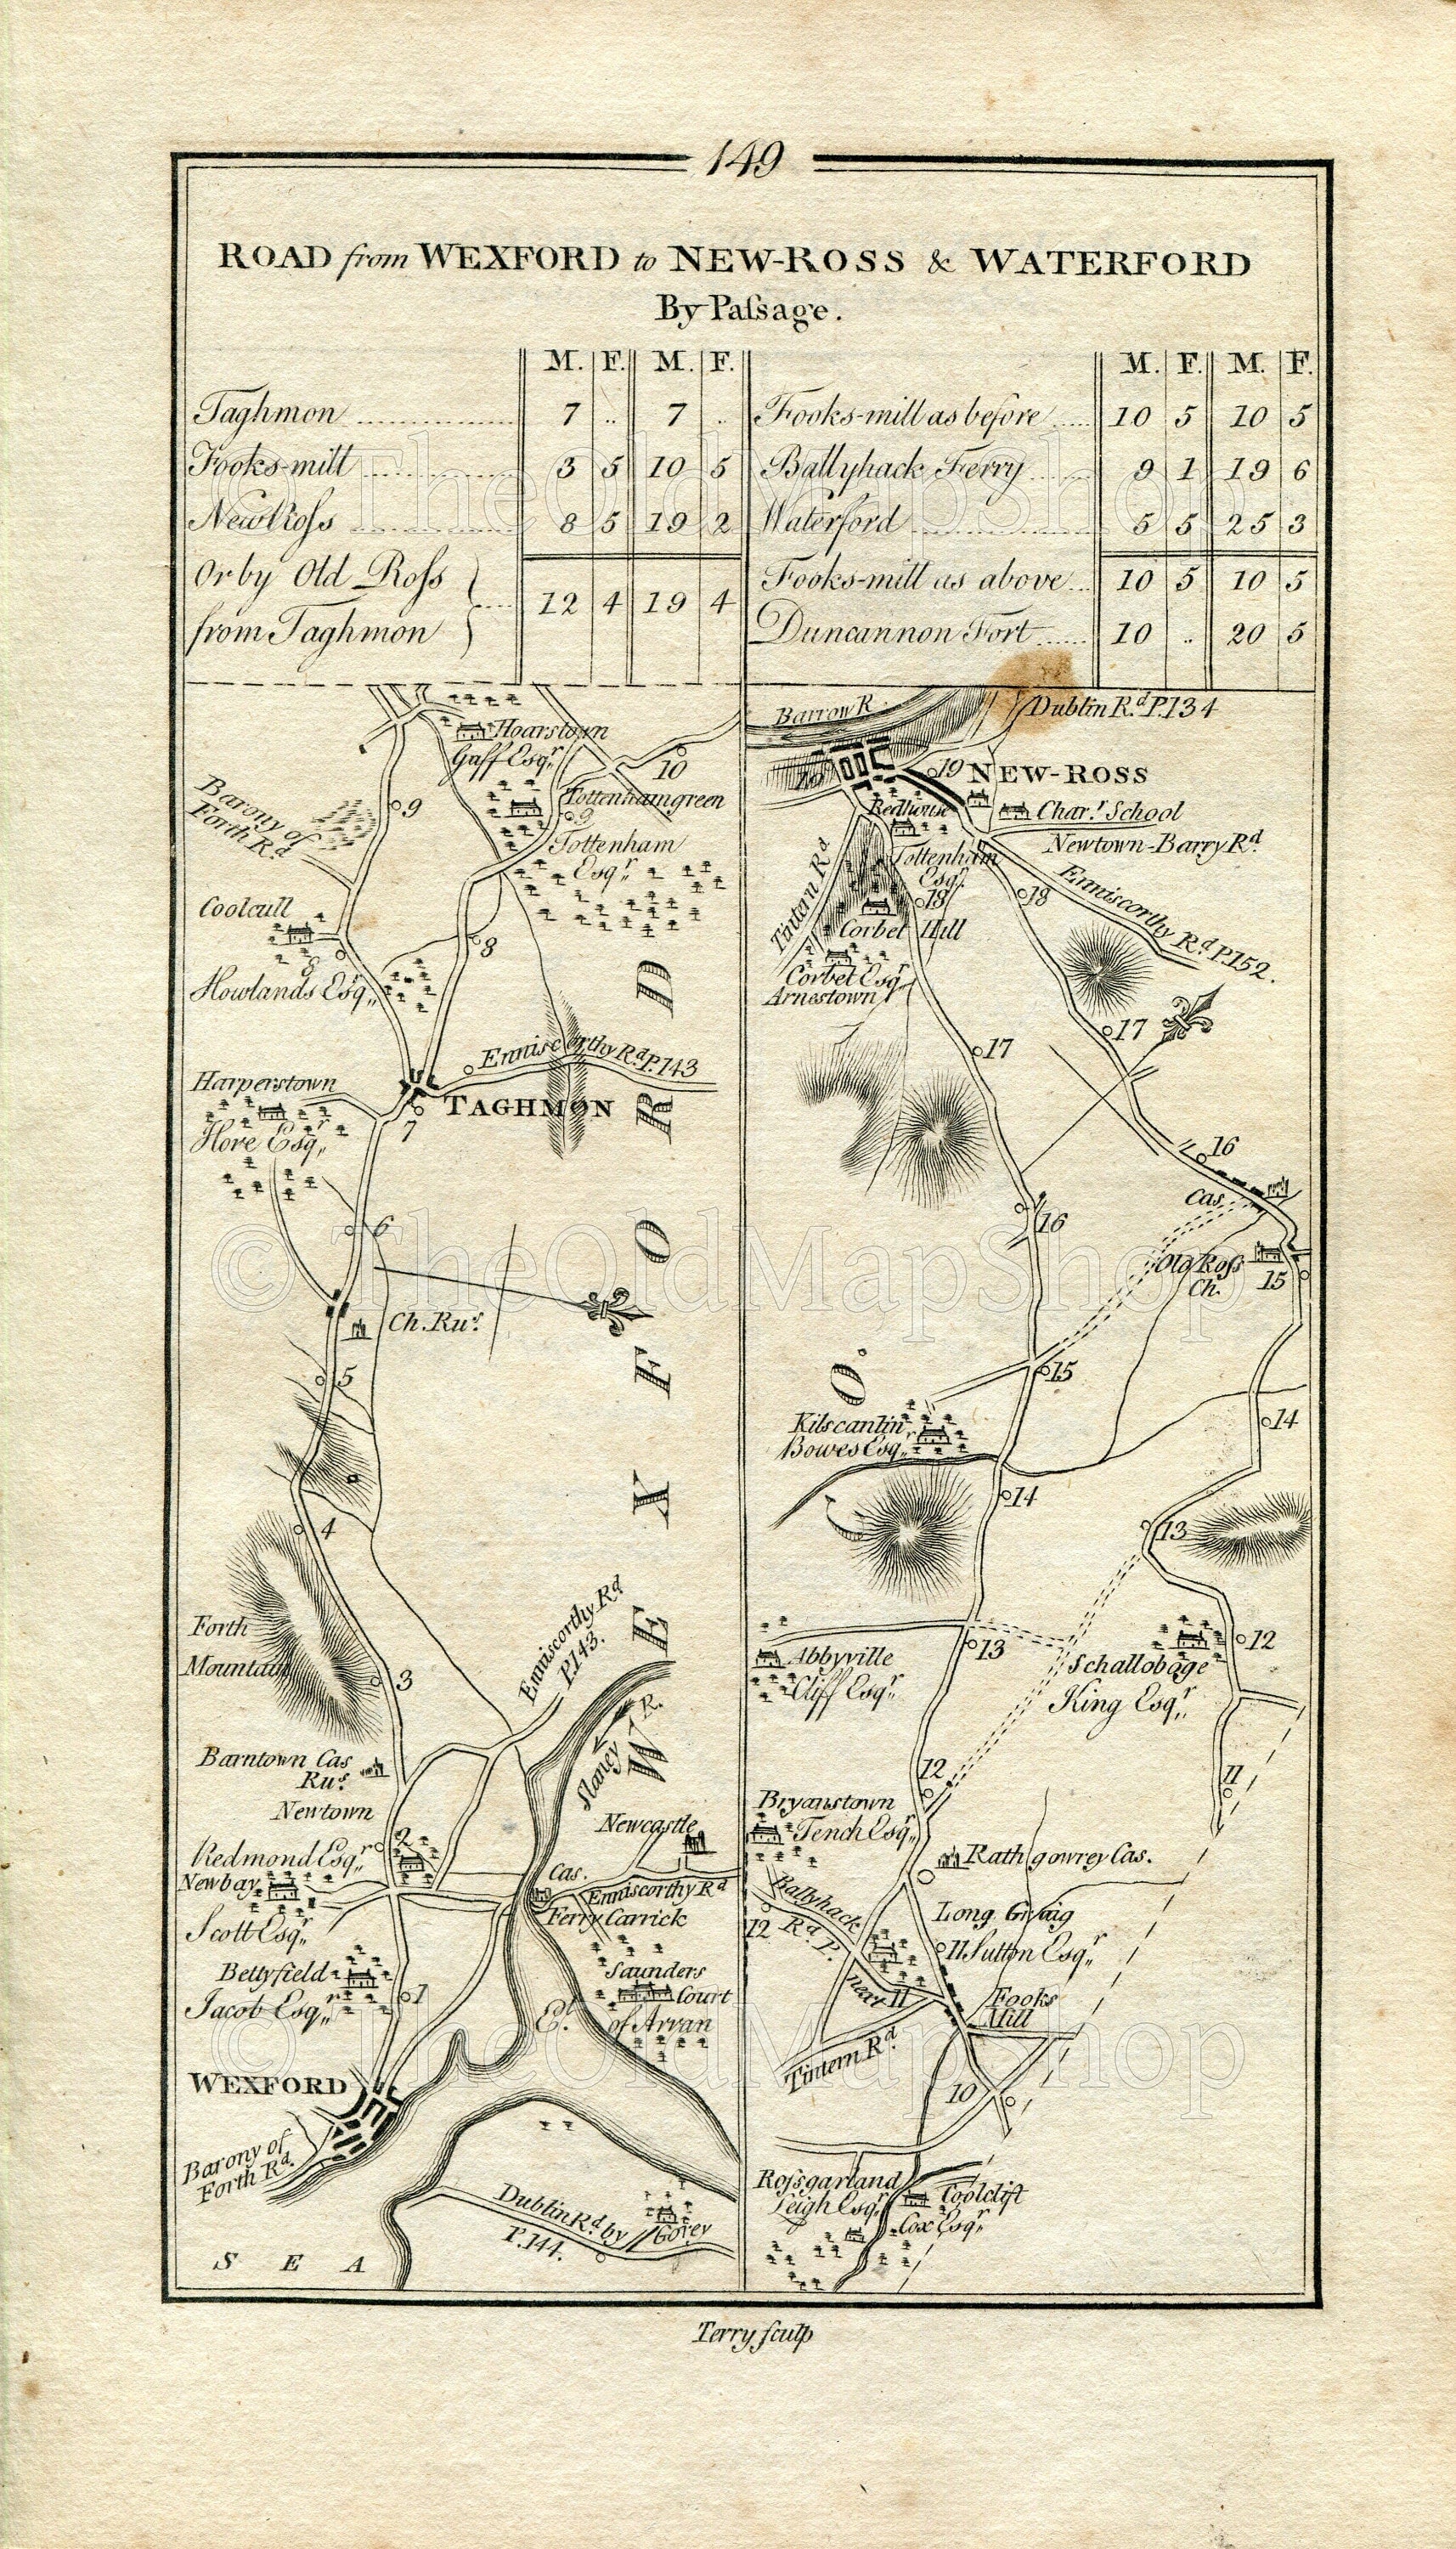 149
ROAD from WEXFORD to NEW-ROSS & WATERFORD
By Paſsage.
M. F. M. F.
Taghmon 7 .. 7 ..
Fooks-mill 3 5 10 5
New Roſs 8 5 19 2
Or by Old Roſs
from Taghmon 12 4 19 4
M. F. M. F.
Fooks-mill as before 10 5 10 5
Ballyhack Ferry 9 1 19 6
Waterford 5 5 25 3
Fooks-mill as above 10 5 10 5
Duncannon Fort 10 .. 20 5
Hoarstown
Goff Esqr.
10
Tottenhamgreen
9
Tottenham
Esqr.
Barony of
Forth Rd.
9
Coolcull
8
Howlands Esqr.
8
Enniscorthy Rd. P.143
Harperstown
TAGHMON
7
Hore Esqr.
6
Ch. Rus.
5
4
Forth
Mountain
3
Enniscorthy Rd
P.143.
Slaney R.
Barntown Cas
Rus.
Newtown
2
Redmond Esqr.
Newcastle
Newbay
Cas.
Enniscorthy Rd
Ferry Carrick
Scott Esqr.
Bettyfield
Jacob Esqr.
1
Saunders
Court
El. of Arran
WEXFORD
Barony of
Forth Rd.
Dublin Rd. by Gorey
P.144.
SEA
WEXFORD
CO.
Barrow R.
Dublin Rd. P.134
19
19
NEW-ROSS
Redhouse
Char. School
Newtown-Barry Rd.
Tottenham
Esqr.
Tintern Rd
18
18
Enniscorthy Rd. P.152.
Corbet Hill
Corbet Esqr.
Arnestown
17
17
16
Cas.
16
Old Roſs
Ch.
15
15
14
Kilscanlin
Bowes Esqr.
14
13
Abbyville
Cliff Esqr.
13
12
Schallobage
King Esqr.
12
11
Bryanstown
Tench Esqr.
Rathgowrey Cas.
Ballyhack
Rd P.
next
12
Long Graig
11 Sutton Esqr.
11
Fooks
Mill
Tintern Rd
10
Roſsgarland
Leigh Esqr.
Coolclift
Cox Esqr.
Terry ſculp
© TheOldMapShop
© TheOldMapShop
© TheOldMapShop